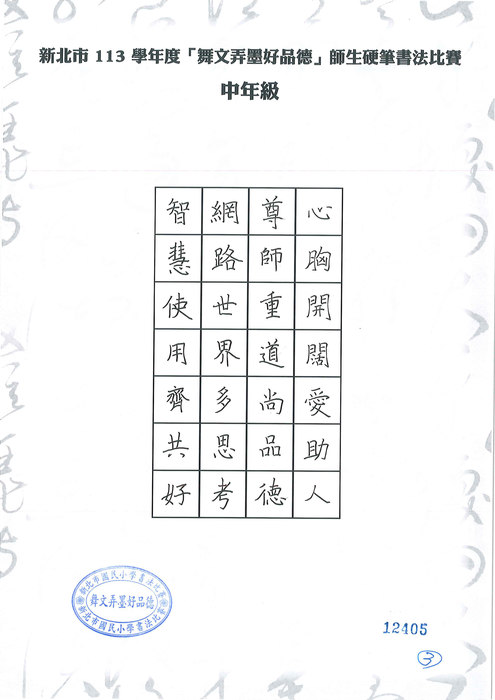 新北市 113 學年度「舞文弄墨好品德」師生硬筆書法比賽
中年級
心胸開闊愛助人
尊師重道尚品德
網路世界多思考
智慧使用齊共好
新北市國民小學書法比賽
舞文弄墨好品德
新北市國民小學書法比
12405
3